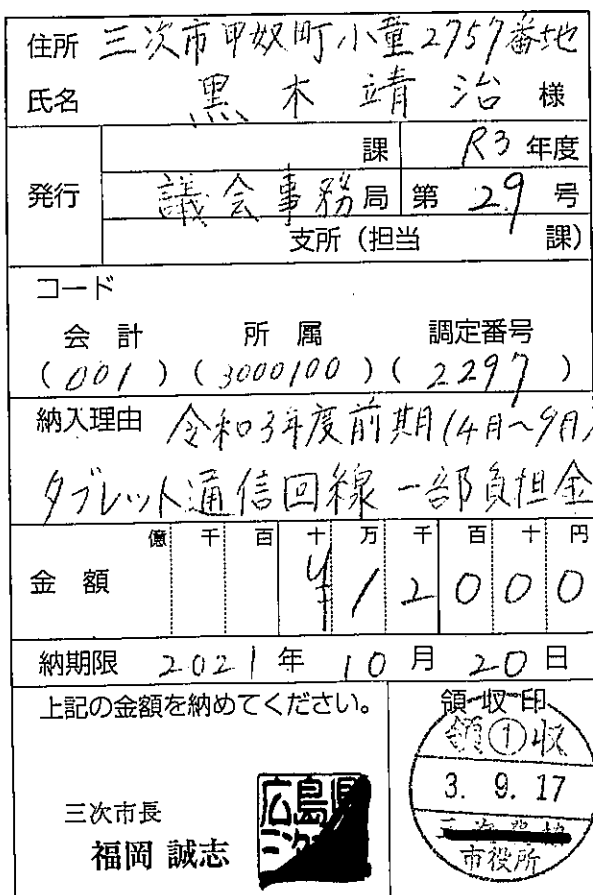 住所 三次市甲奴町小童2757番地
氏名 黒木靖治 様
課 R3年度
発行 議会事務局 第29号
支所(担当 課)
コード
会計 所属 調定番号
(001)(3000100)(2297)
納入理由 令和3年度前期(4月~9月)
タブレット通信回線一部負担金
億千百十万千百十円
金額 ¥12000
納期限 2021年10月20日
上記の金額を納めてください。
領収印
領①収
3. 9. 17
市役所
三次市長
福岡 誠志
広島県
三次